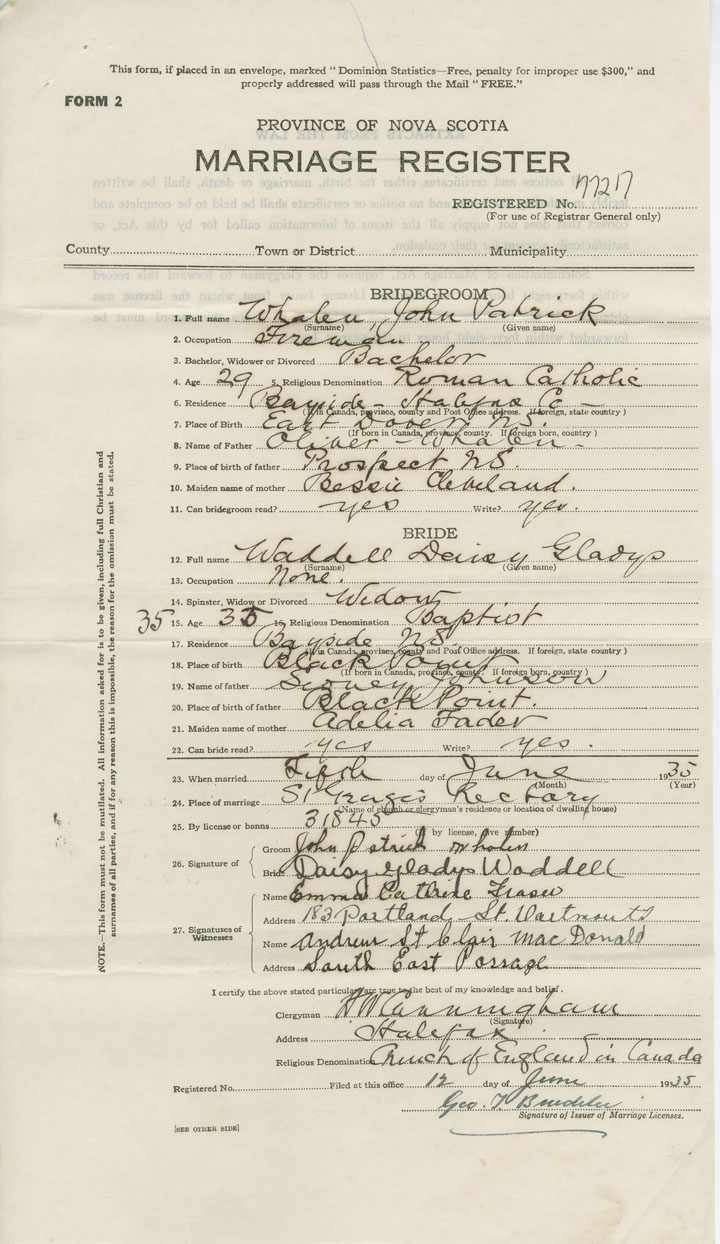 This form, if placed in an envelope, marked "Dominion Statistics—Free, penalty for improper use $300," and
properly addressed will pass through the Mail "FREE."
FORM 2
PROVINCE OF NOVA SCOTIA
MARRIAGE REGISTER
REGISTERED No. 77217
(For use of Registrar General only)
County Town or District Municipality
BRIDEGROOM
1. Full name Whalen, John Patrick
(Surname) (Given name)
2. Occupation Fireman
3. Bachelor, Widower or Divorced Bachelor
4. Age 29 5. Religious Denomination Roman Catholic
6. Residence Bayside - Halifax Co -
(If in Canada, province, county and Post Office address. If foreign, state country)
7. Place of Birth East Dover N.S.
(If born in Canada, province, county. If foreign born, country)
8. Name of Father Oliver - Whalen -
9. Place of birth of father Prospect N.S.
10. Maiden name of mother Bessie Cleveland.
11. Can bridegroom read? yes Write? yes.
BRIDE
12. Full name Waddell Daisy Gladys
(Surname) (Given name)
13. Occupation None.
14. Spinster, Widow or Divorced Widow
35 15. Age 35 16. Religious Denomination Baptist
17. Residence Bayside N.S.
(If in Canada, province, county and Post Office address. If foreign, state country)
18. Place of birth Black Point
(If born in Canada, province, county. If foreign born, country)
19. Name of father Sidney Johnson
20. Place of birth of father Black Point.
21. Maiden name of mother Adelia Fader
22. Can bride read? yes Write? yes.
23. When married Fifth day of June 1935
(Month) (Year)
24. Place of marriage St Georges Rectory
(Name of church or clergyman's residence or location of dwelling house)
25. By license or banns 31845
(If by license, give number)
26. Signature of
Groom John Patrick Whalen
Bride Daisy Gladys Waddell
27. Signatures of Witnesses
Name Emma Cathrine Fraser
Address 183 Portland St. Dartmouth
Name Andrew St Clair Mac Donald
Address South East Passage
I certify the above stated particulars are true to the best of my knowledge and belief.
Clergyman H W Cunningham
(Signature)
Address Halifax
Religious Denomination Church of England in Canada
Registered No. Filed at this office 12 day of June 1935
Geo. T.
Signature of Issuer of Marriage Licenses.
[SEE OTHER SIDE]
NOTE.—This form must not be mutilated. All information asked for is to be given, including full Christian and
surnames of all parties, and if for any reason this is impossible, the reason for the omission must be stated.